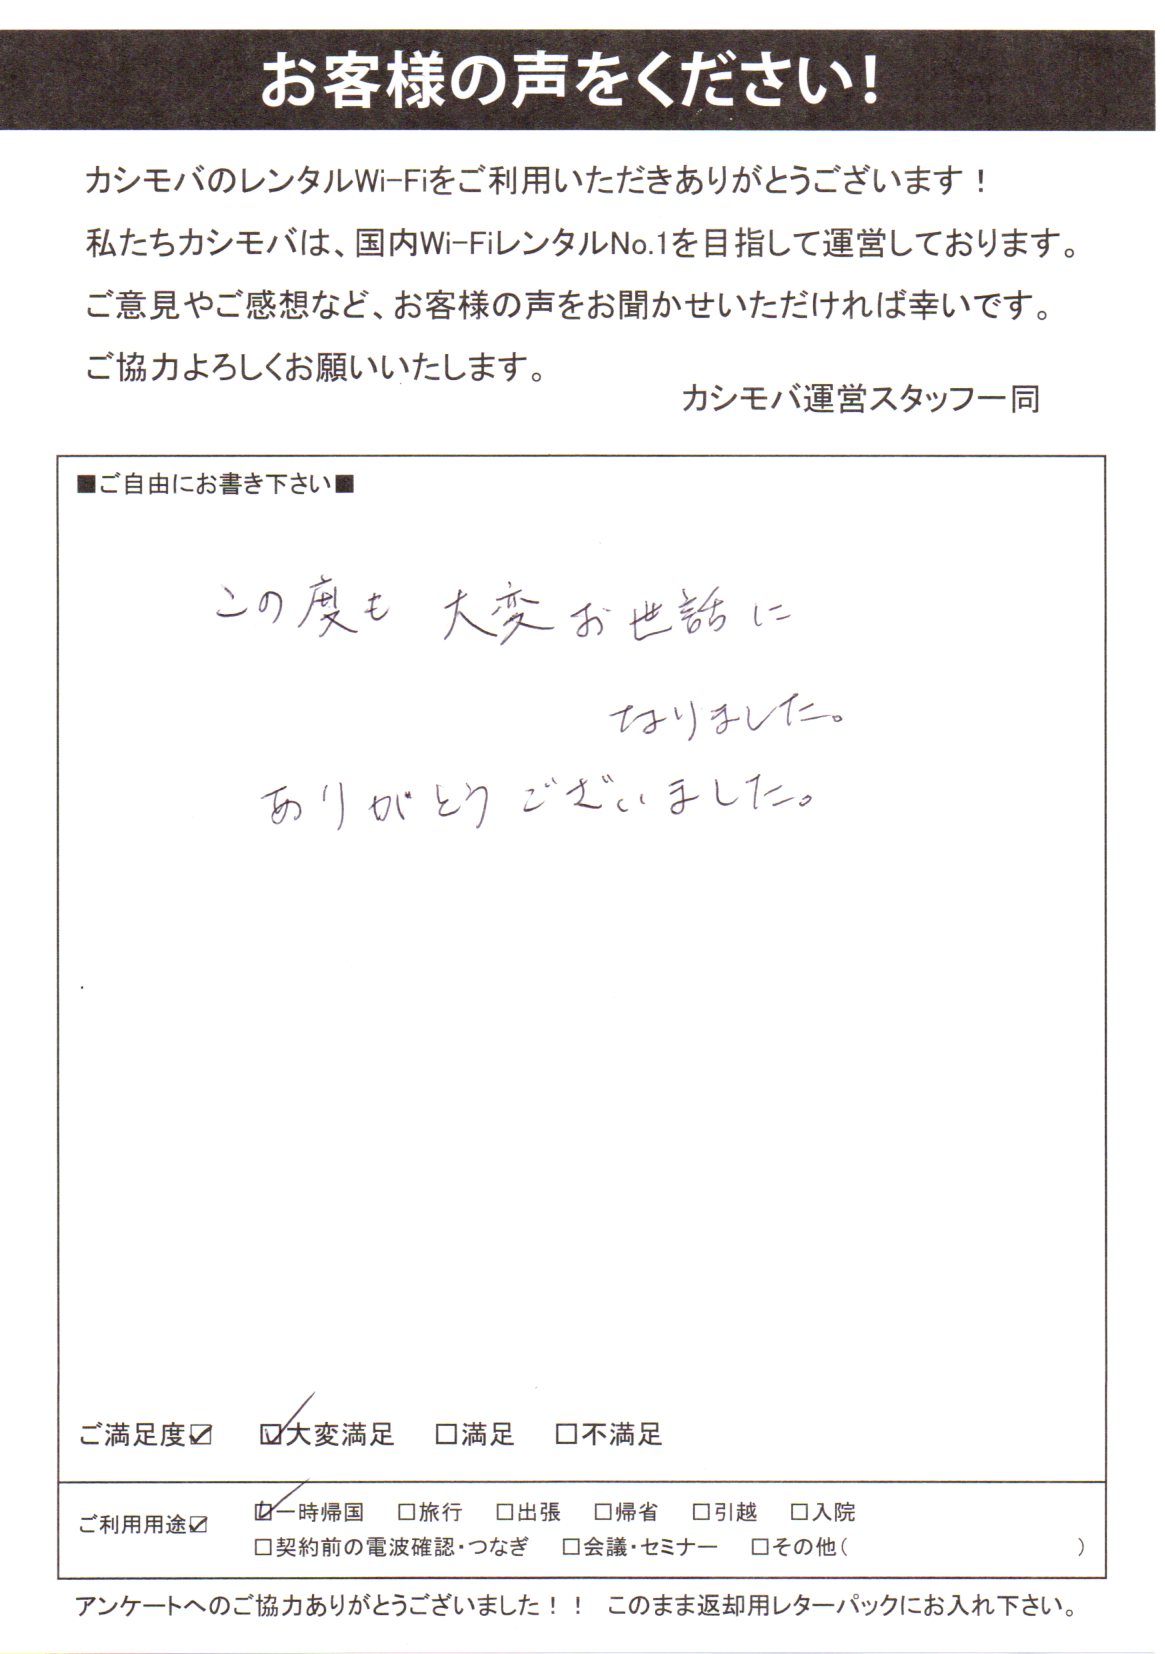 お客様の声をください!
カシモバのレンタルWi-Fiをご利用いただきありがとうございます！
私たちカシモバは、国内Wi-FiレンタルNo.1を目指して運営しております。
ご意見やご感想など、お客様の声をお聞かせいただければ幸いです。
ご協力よろしくお願いいたします。
カシモバ運営スタッフ一同
■ご自由にお書き下さい■
この度も 大変お世話に
なりました。
ありがとうございました。
ご満足度☑ ☑大変満足 □満足 □不満足
ご利用用途☑ ☑一時帰国 □旅行 □出張 □帰省 □引越 □入院
□契約前の電波確認・つなぎ □会議・セミナー □その他( )
アンケートへのご協力ありがとうございました！！ このまま返却用レターパックにお入れ下さい。